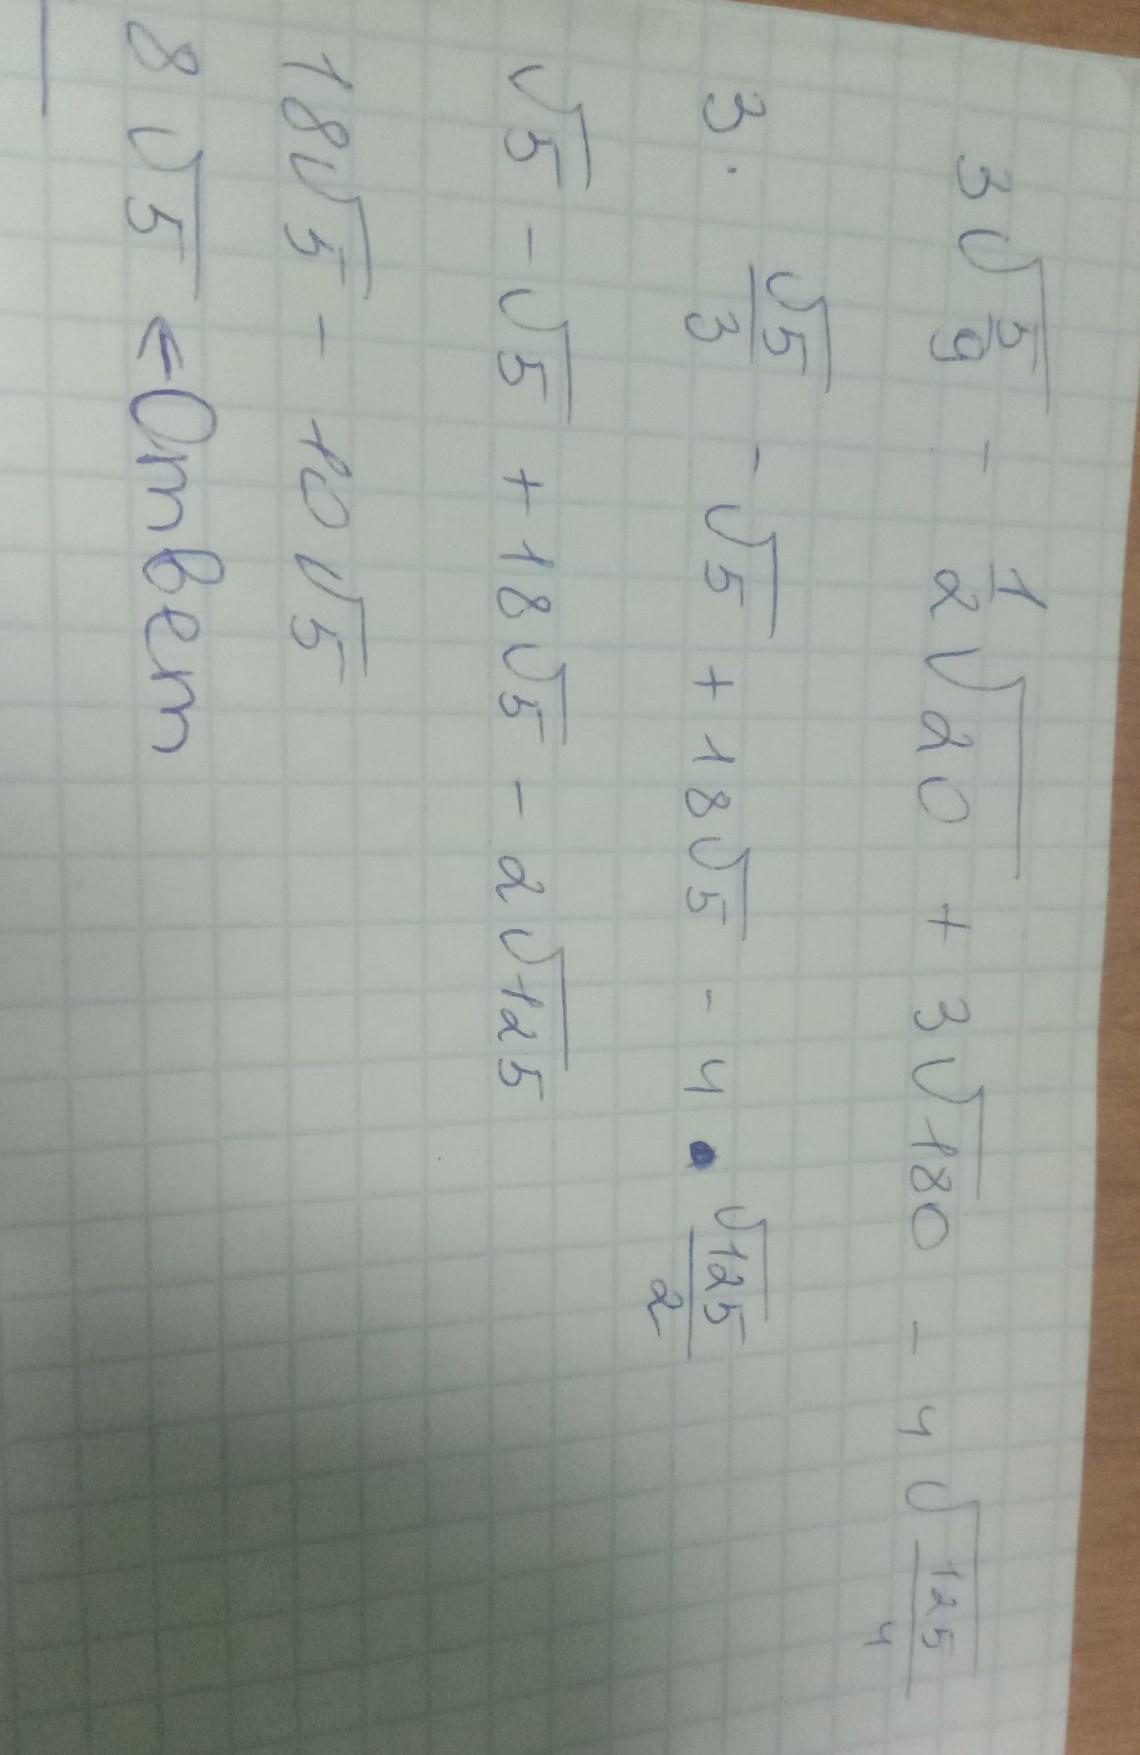 3√(5/9) - 1/2√20 + 3√180 - 4√(125/4)
3 · √5/3 - √5 + 18√5 - 4 · √125/2
√5 - √5 + 18√5 - 2√125
18√5 - 10√5
8√5 ← Ответ